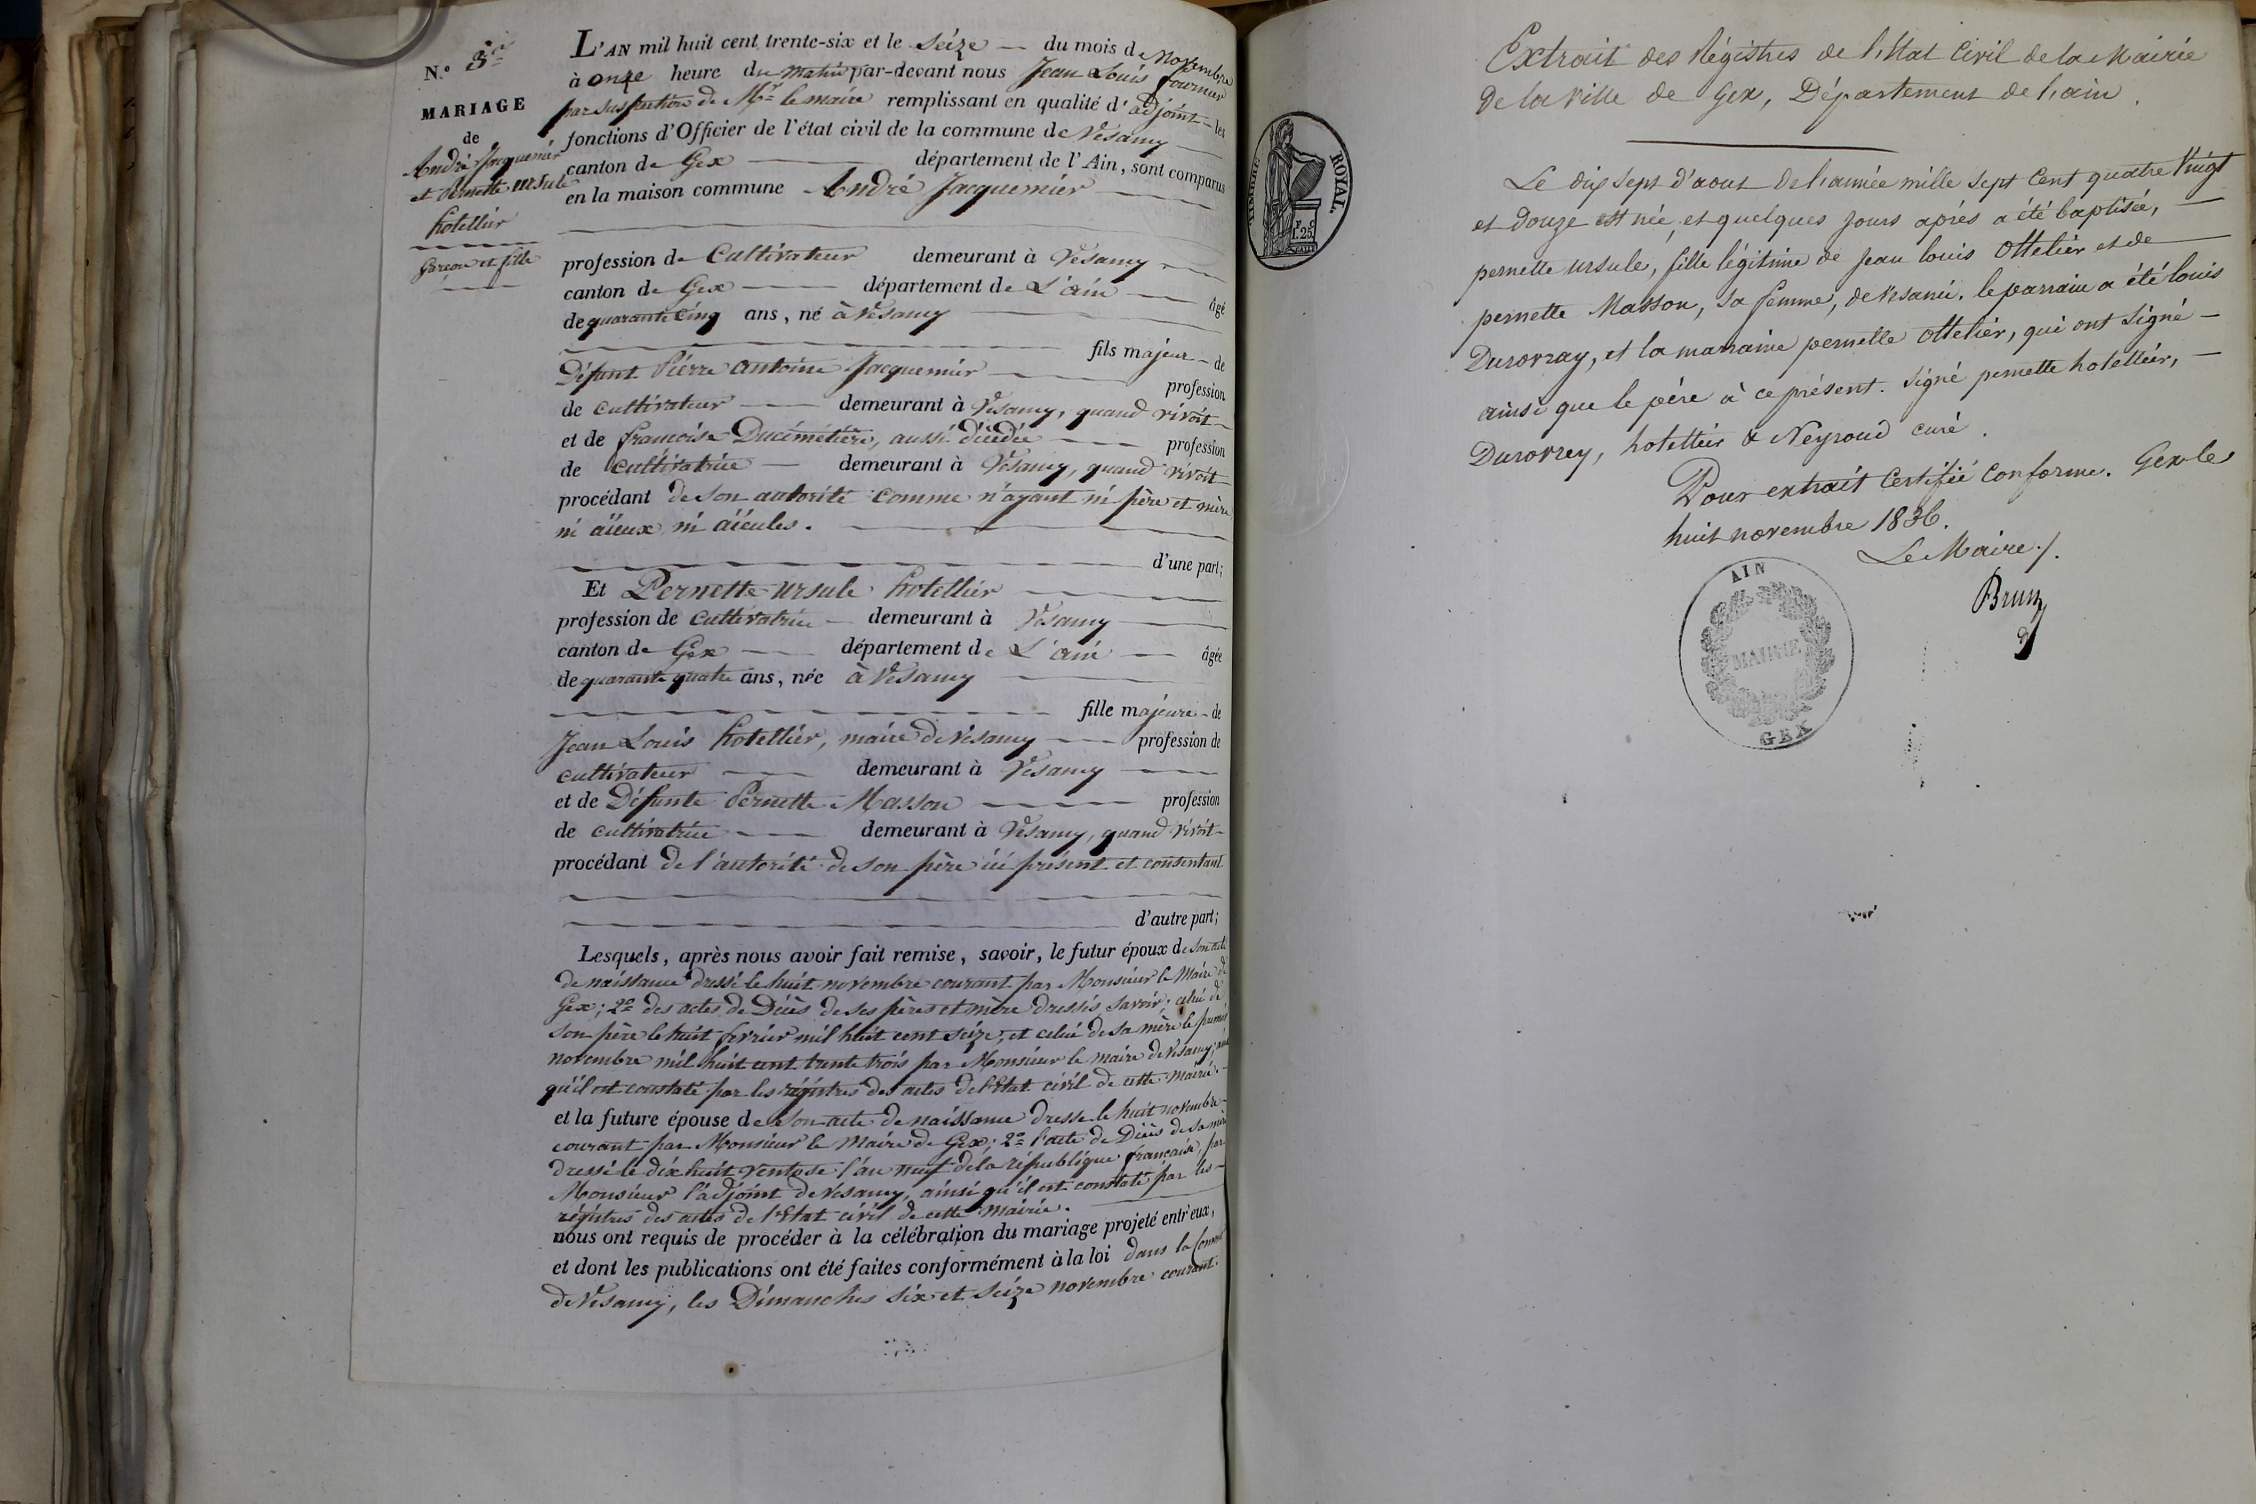 N.º 3.e
MARIAGE
de
André Jacquemier
et Pernette Ursule
hotellier
Garçon et fille
L'AN mil huit cent trente-six et le Seize du mois de Novembre
à onze heure du matin par-devant nous Jean Louis fournier
par de Mr le maire remplissant en qualité d'adjoint les
fonctions d'Officier de l'état civil de la commune de Vésamy
canton de Gex département de l'Ain, sont comparus
en la maison commune André Jacquemier
profession de Cultivateur demeurant à Vésamy
canton de Gex département de L'ain âgé
de quarante cinq ans, né à Vésamy
fils majeur de
Défunt Pierre antoine Jacquemier profession
de cultivateur demeurant à Vésamy, quand vivoit
et de françoise Ducimétière, aussi décédée profession
de cultivatrice demeurant à Vésamy, quand vivoit
procédant de son autorité comme n'ayant ni père et mère
ni aïeux ni aïeules.
d'une part;
Et Pernette ursule hotellier
profession de cultivatrice demeurant à Vésamy
canton de Gex département de L'ain âgée
de quarante quatre ans, née à Vésamy
fille majeure de
Jean Louis hotellier, maire de Vésamy profession de
cultivateur demeurant à Vésamy
et de Défunte Pernette Masson profession
de cultivatrice demeurant à Vésamy, quand vivoit
procédant de l'autorité de son père ici présent et consentant
d'autre part;
Lesquels, après nous avoir fait remise, savoir, le futur époux de son acte
de naissance dressé le huit novembre courant par Monsieur le Maire de
Gex; 2º des actes de Décès de ses pères et mère dressés savoir; celui de
son père le huit fevrier mil huit cent seize; et celui de sa mère le premier
novembre mil huit cent trente trois par Monsieur le maire de Vésamy, ainsi
qu'il est constaté par les régistres des actes de l'Etat civil de cette mairie.
et la future épouse de son acte de naissance dressé le huit novembre
courant par Monsieur le Maire de Gex; 2º l'acte de Décès de sa mère
dressé le dix huit ventose l'an neuf de la république française, par
Monsieur l'adjoint de Vésamy, ainsi qu'il est constaté par les
régistres des actes de l'Etat civil de cette mairie.
nous ont requis de procéder à la célébration du mariage projeté entr'eux,
et dont les publications ont été faites conformément à la loi dans la Commune
de Vésamy, les Dimanches six et seize novembre courant.
TIMBRE ROYAL.
1.25
Extrait des Régistres de l'Etat Civil de la Mairie
de la ville de Gex, Département de l'ain.
Le dix sept d'aout de l'année mille sept Cent quatre Vingt
et douze est née, et quelques jours aprés a été baptisée,
pernette ursule, fille légitime de jean louis Ottelier et de
pernette Masson, sa femme, de vesanci. le parrain a été louis
Durovray, et la marraine pernette ottelier, qui ont signé
ainsi que le pére à ce présent. signé pernette hotellier,
Durovrey, hotellier & Neyroud curé.
Pour extrait Certifié Conforme. Gex le
huit novembre 1836.
Le Maire /.
Brun
AIN
MAIRIE
GEX